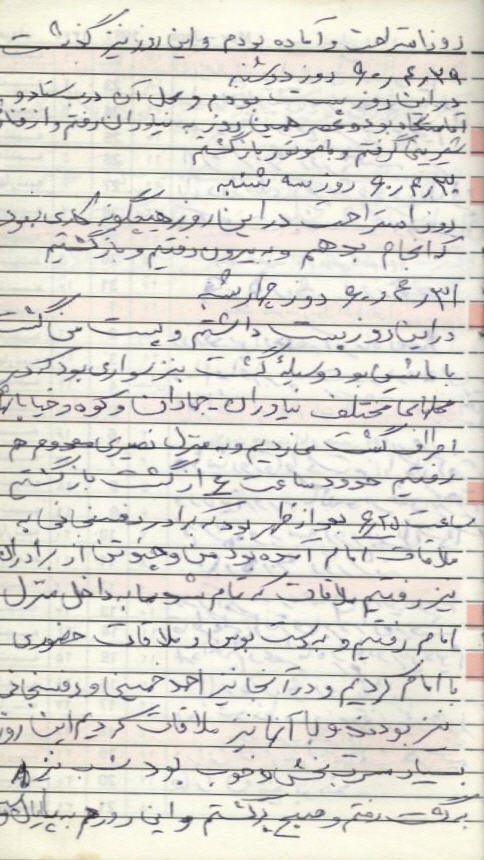 روز استراحت و آماده بودم و این روز نیز گذشت
۶۰،۴،۲۹ روز دوشنبه
در این روز پست بودم و محل آن درب ستاد و
آسایشگاه بود و عصر همین روز به نیاوران رفتم و از
شیرینی گرفتم و با موتور بازگشتم
۶۰،۴،۳۰ روز سه شنبه
روز استراحت در این روز هیچگونه کاری نبود
که انجام بدهم و به بیرون رفتیم و بازگشتیم
۶۰،۴،۳۱ روز چهارشنبه
در این روز پست داشتم و پست من گشت
با ماشین بود وسیله گشت بنز سواری بود که در
محلهای مختلف نیاوران - جماران و کوه و خیابانهای
اطراف گشت میزدیم و به منزل نصیری معدوم هم
رفتیم حدود ساعت ۶ از گشت بازگشتم
ساعت ۶،۲۵ بعد از ظهر بود که برادر رفسنجانی به
ملاقات امام آمده بود من و چند تن از برادران
نیز رفتیم ملاقات که تمام شد ما به داخل منزل
امام رفتیم و به دست بوسی و ملاقات حضوری
با امام کردیم و در آنجا نیز احمد خمینی و رفسنجانی
نیز بودند و با آنها نیز ملاقات کردیم این روز
بسیار مسرت بخش و خوب بود شب نیز
برگشت رفتم و صبح برگشتم و این روز هم به پایان